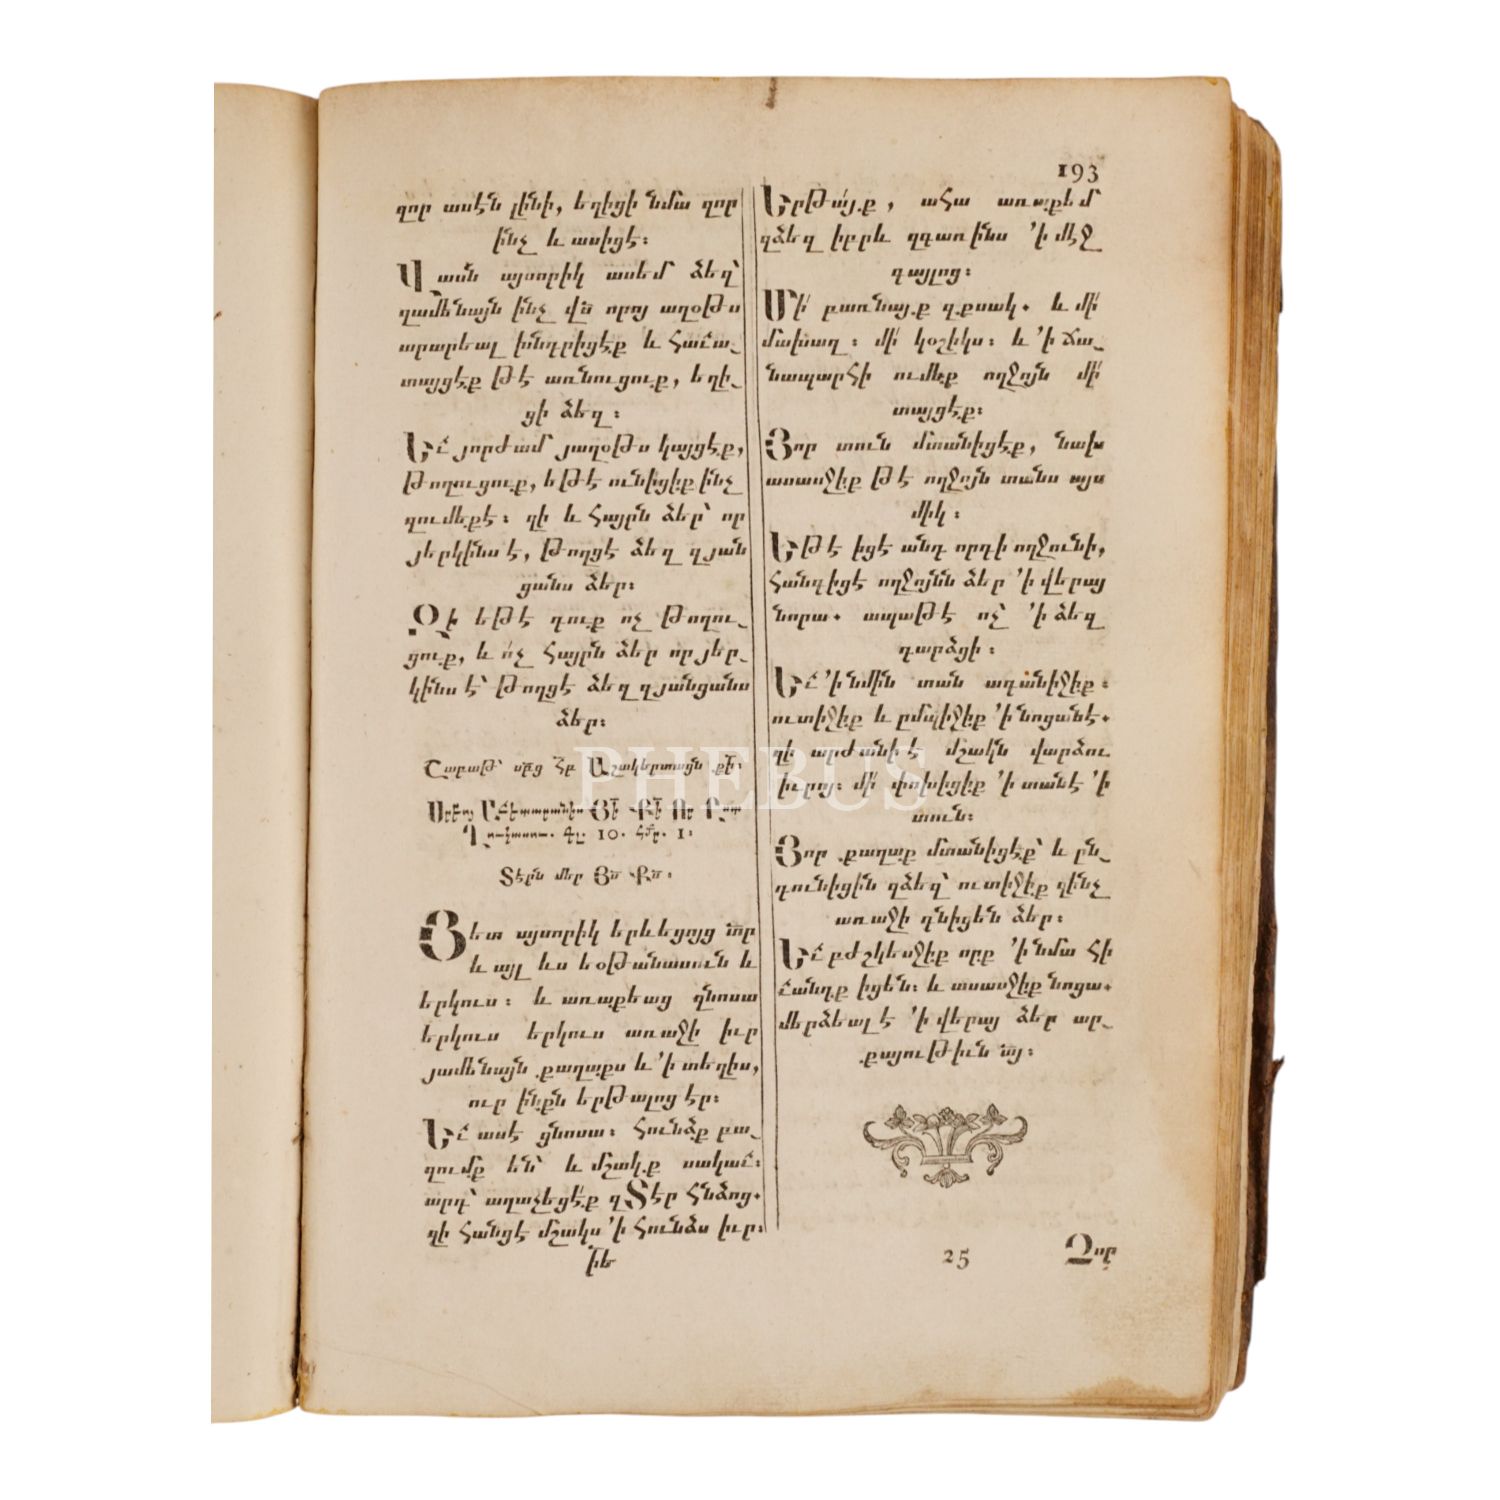 193
զոր ասէն լինի, եղիցի նմա զոր
ինչ և ասիցէ։
Վասն այսորիկ ասեմ ձեզ՝
զամենայն ինչ վս որոյ աղօթս
արարեալ խնդրիցէք և հաւա֊
տայցէք թէ առնուցուք, եղի֊
ցի ձեզ։
Եւ յորժամ յաղօթս կայցէք,
թողուցուք, եթէ ունիցիք ինչ
զումեքէ։ զի և հայրն ձեր՝ որ
յերկինս է, թողցէ ձեզ զյան
ցանս ձեր։
Զի եթէ դուք ոչ թողու֊
ցուք, և ոչ հայրն ձեր որ յեր֊
կինս է՝ թողցէ ձեզ զյանցանս
ձեր։
Շաբաթ՝ սրբց ՀԲ Աշակերտացն քի։
Սրբոյ Աւետարանիս Յի Քի Որ Ըստ
Ղուկասու. Գլ. 10. Հմր. 1։
Տէրն մեր Յս Քս։
Յետ այսորիկ երևեցոյց տր
և այլ ևս եօթանասուն և
երկուս։ և առաքեաց զնոսա
երկուս երկուս առաջի իւր
յամենայն քաղաքս և ՚ի տեղիս,
ուր ինքն երթալոց էր։
Եւ ասէ ցնոսա։ հունձք բա֊
զումք են՝ և մշակք սակաւ։
արդ՝ աղաչեցէք զՏէր հնձոց.
զի հանցէ մշակս ՚ի հունձս իւր։
իե
Երթայք, ահա առաքեմ
զձեզ իբրև զգառինս ՚ի մէջ
գայլոց։
Մի՛ բառնայք զքսակ. և մի՛
մախաղ։ մի՛ կօշիկս։ և ՚ի ճա֊
նապարհի ումեք ողջոյն մի՛
տայցէք։
Յոր տուն մտանիցէք, նախ
ասասջիք թէ ողջոյն տանս այս
միկ։
Եթէ իցէ անդ որդի ողջունի,
հանգիցէ ողջոյնն ձեր ՚ի վերայ
նորա. ապաթէ ոչ՝ ՚ի ձեզ
դարձցի։
Եւ ՚ի նմին տան ագանիջիք։
ուտիջիք և ըմպիջիք ՚ի նոցանէ.
զի արժանի է մշակն վարձու
իւրոյ։ մի՛ փոխիցիք ՚ի տանէ ՚ի
տուն։
Յոր քաղաք մտանիցէք՝ և ըն֊
դունիցին զձեզ՝ ուտիջիք զինչ
առաջի դնիցեն ձեր։
Եւ բժշկեսջիք որք ՚ի նմա հի
ւանդք իցեն։ և ասասջիք նոցա.
մերձեալ է ՚ի վերայ ձեր ար֊
քայութիւն այ։
25
Զոր
PHEBUS